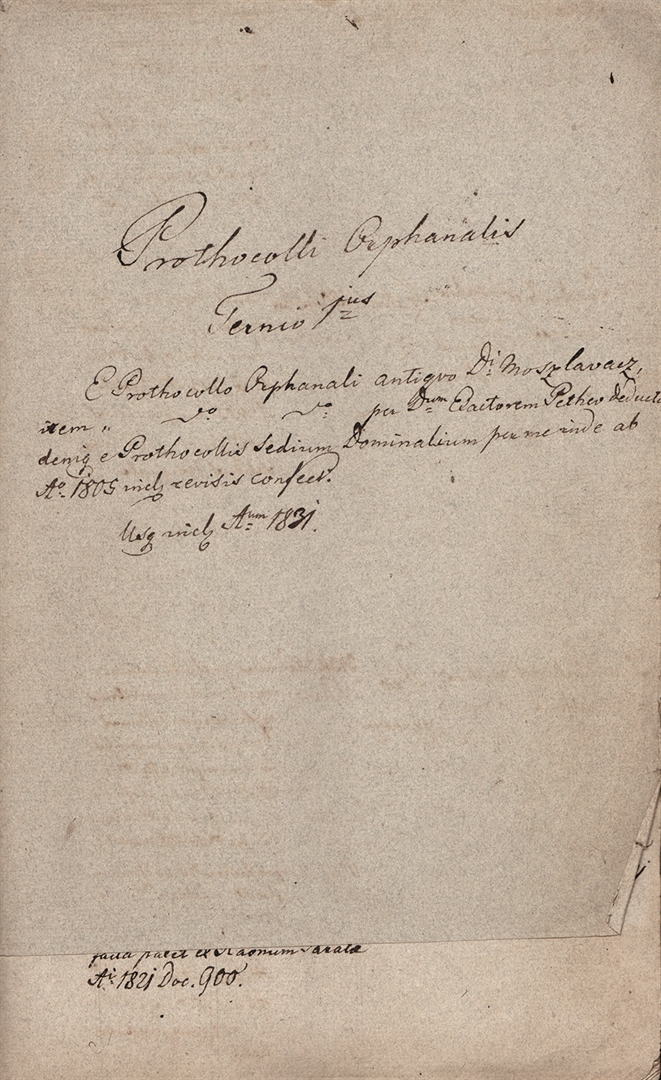 Prothocolli Orphanalis
Ternio 1ius
E Prothocollo Orphanali antiqvo Di Moszlavacz,
item „ do do per Dum Exactorem Petheo deducto
deniq e Prothocollis Sedrium Dominalium per me inde ab
Ao 1805 incl revisis confect.
Usq incl Aum 1831.
facta patet ex Raonum
Ai 1821 Doc. 900.